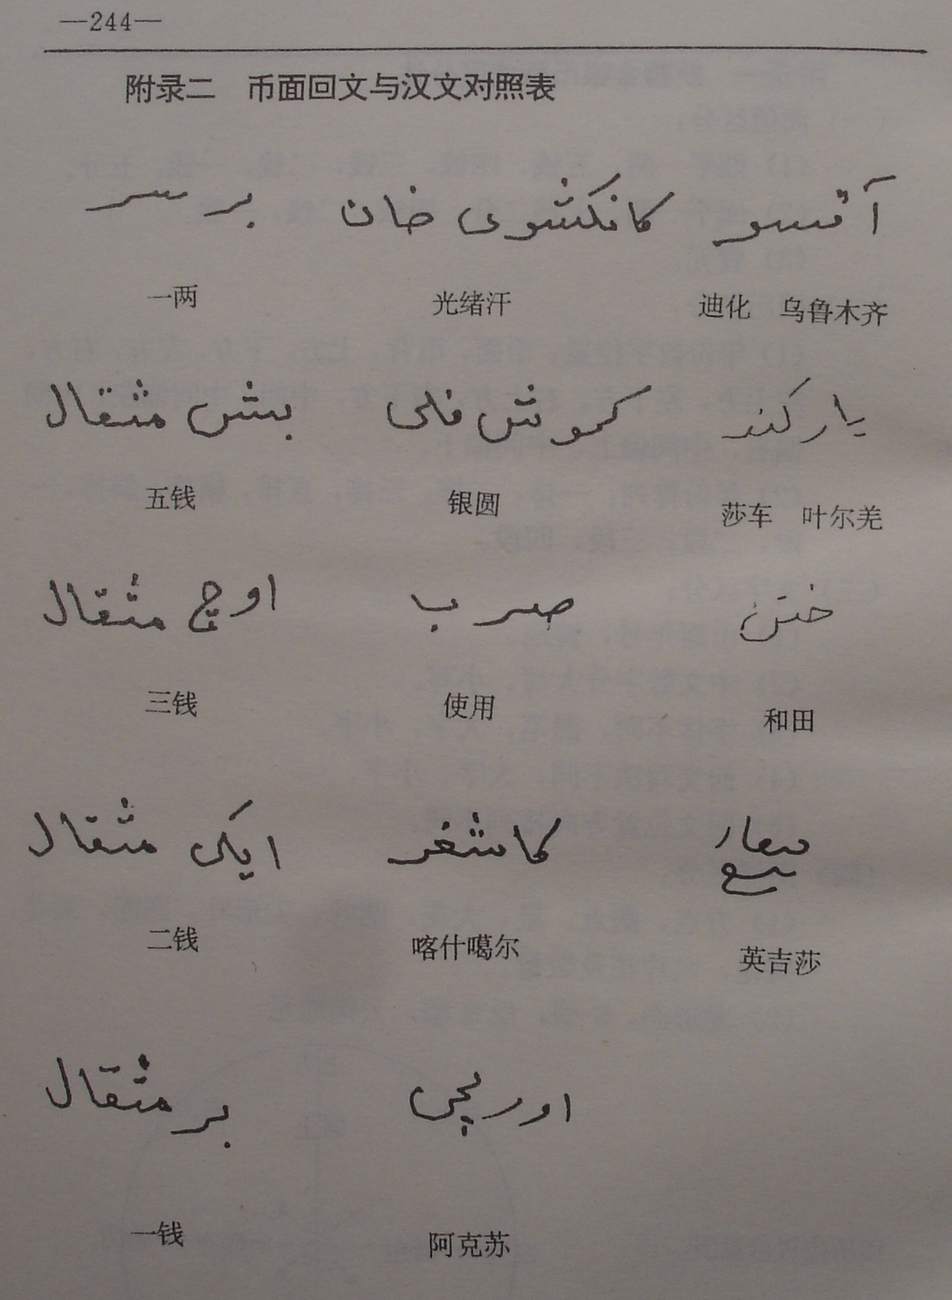 —244—
附录二 币面回文与汉文对照表
بر سر كانكشوى خان آقسو
一两 光绪汗 迪化 乌鲁木齐
بش مثقال كموش فلى ياركند
五钱 银圆 莎车 叶尔羌
اوچ مثقال ضرب ختن
三钱 使用 和田
ايكى مثقال كاشغر
二钱 喀什噶尔 英吉莎
بر مثقال
一钱 阿克苏